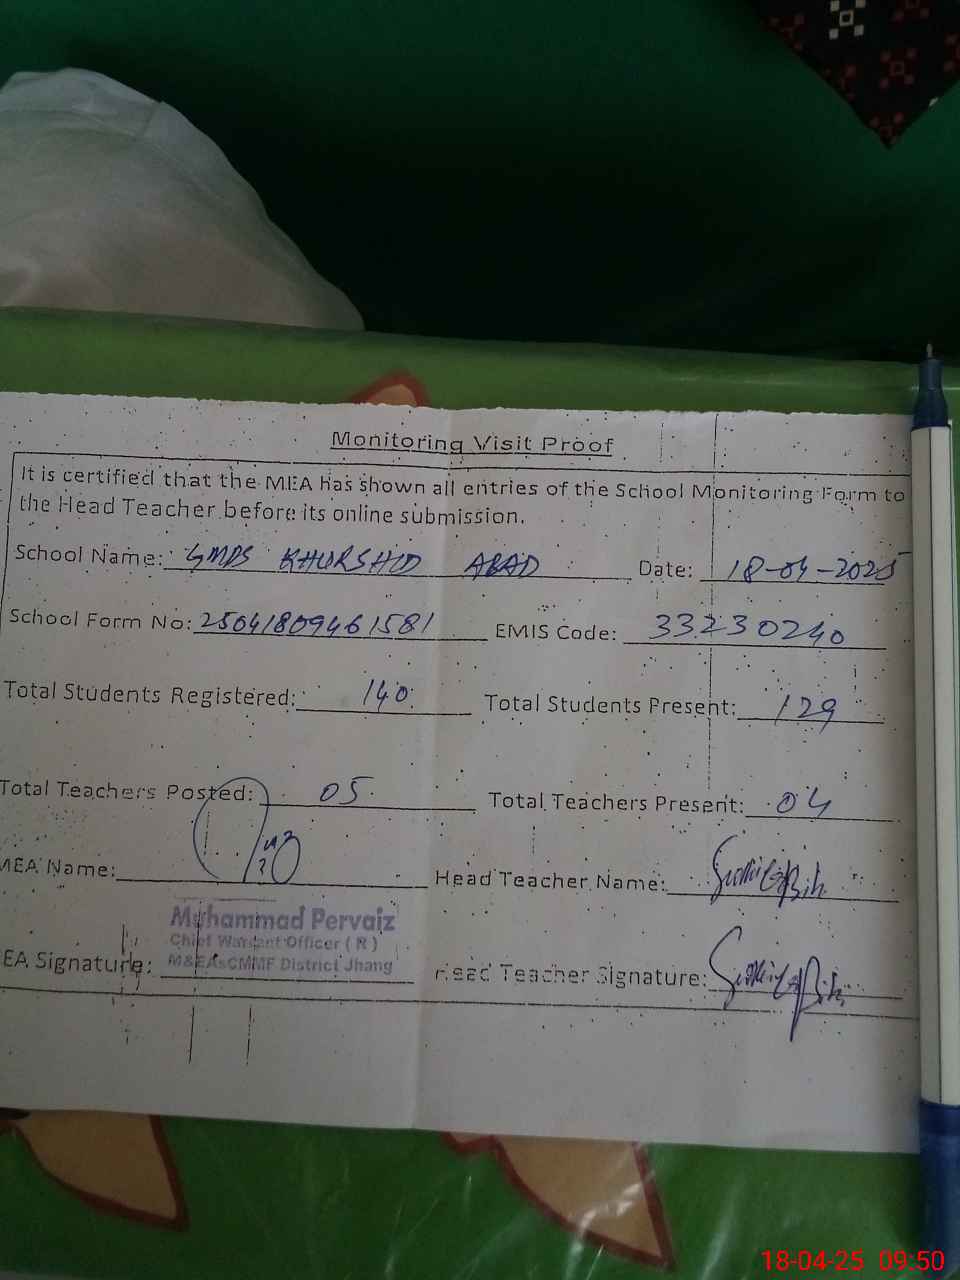 Monitoring Visit Proof
It is certified that the MEA has shown all entries of the School Monitoring Form to
the Head Teacher before its online submission.
School Name: GMPS KHURSHID ABAD Date: 18-04-2025
School Form No: 25041809461581 EMIS Code: 33230240
Total Students Registered: 140 Total Students Present: 129
Total Teachers Posted: 05 Total Teachers Present: 04
MEA Name: Head Teacher Name:
Muhammad Pervaiz
Chief Warrant Officer ( R )
M&EAsCMMF District Jhang
EA Signature: Head Teacher Signature:
18-04-25 09:50